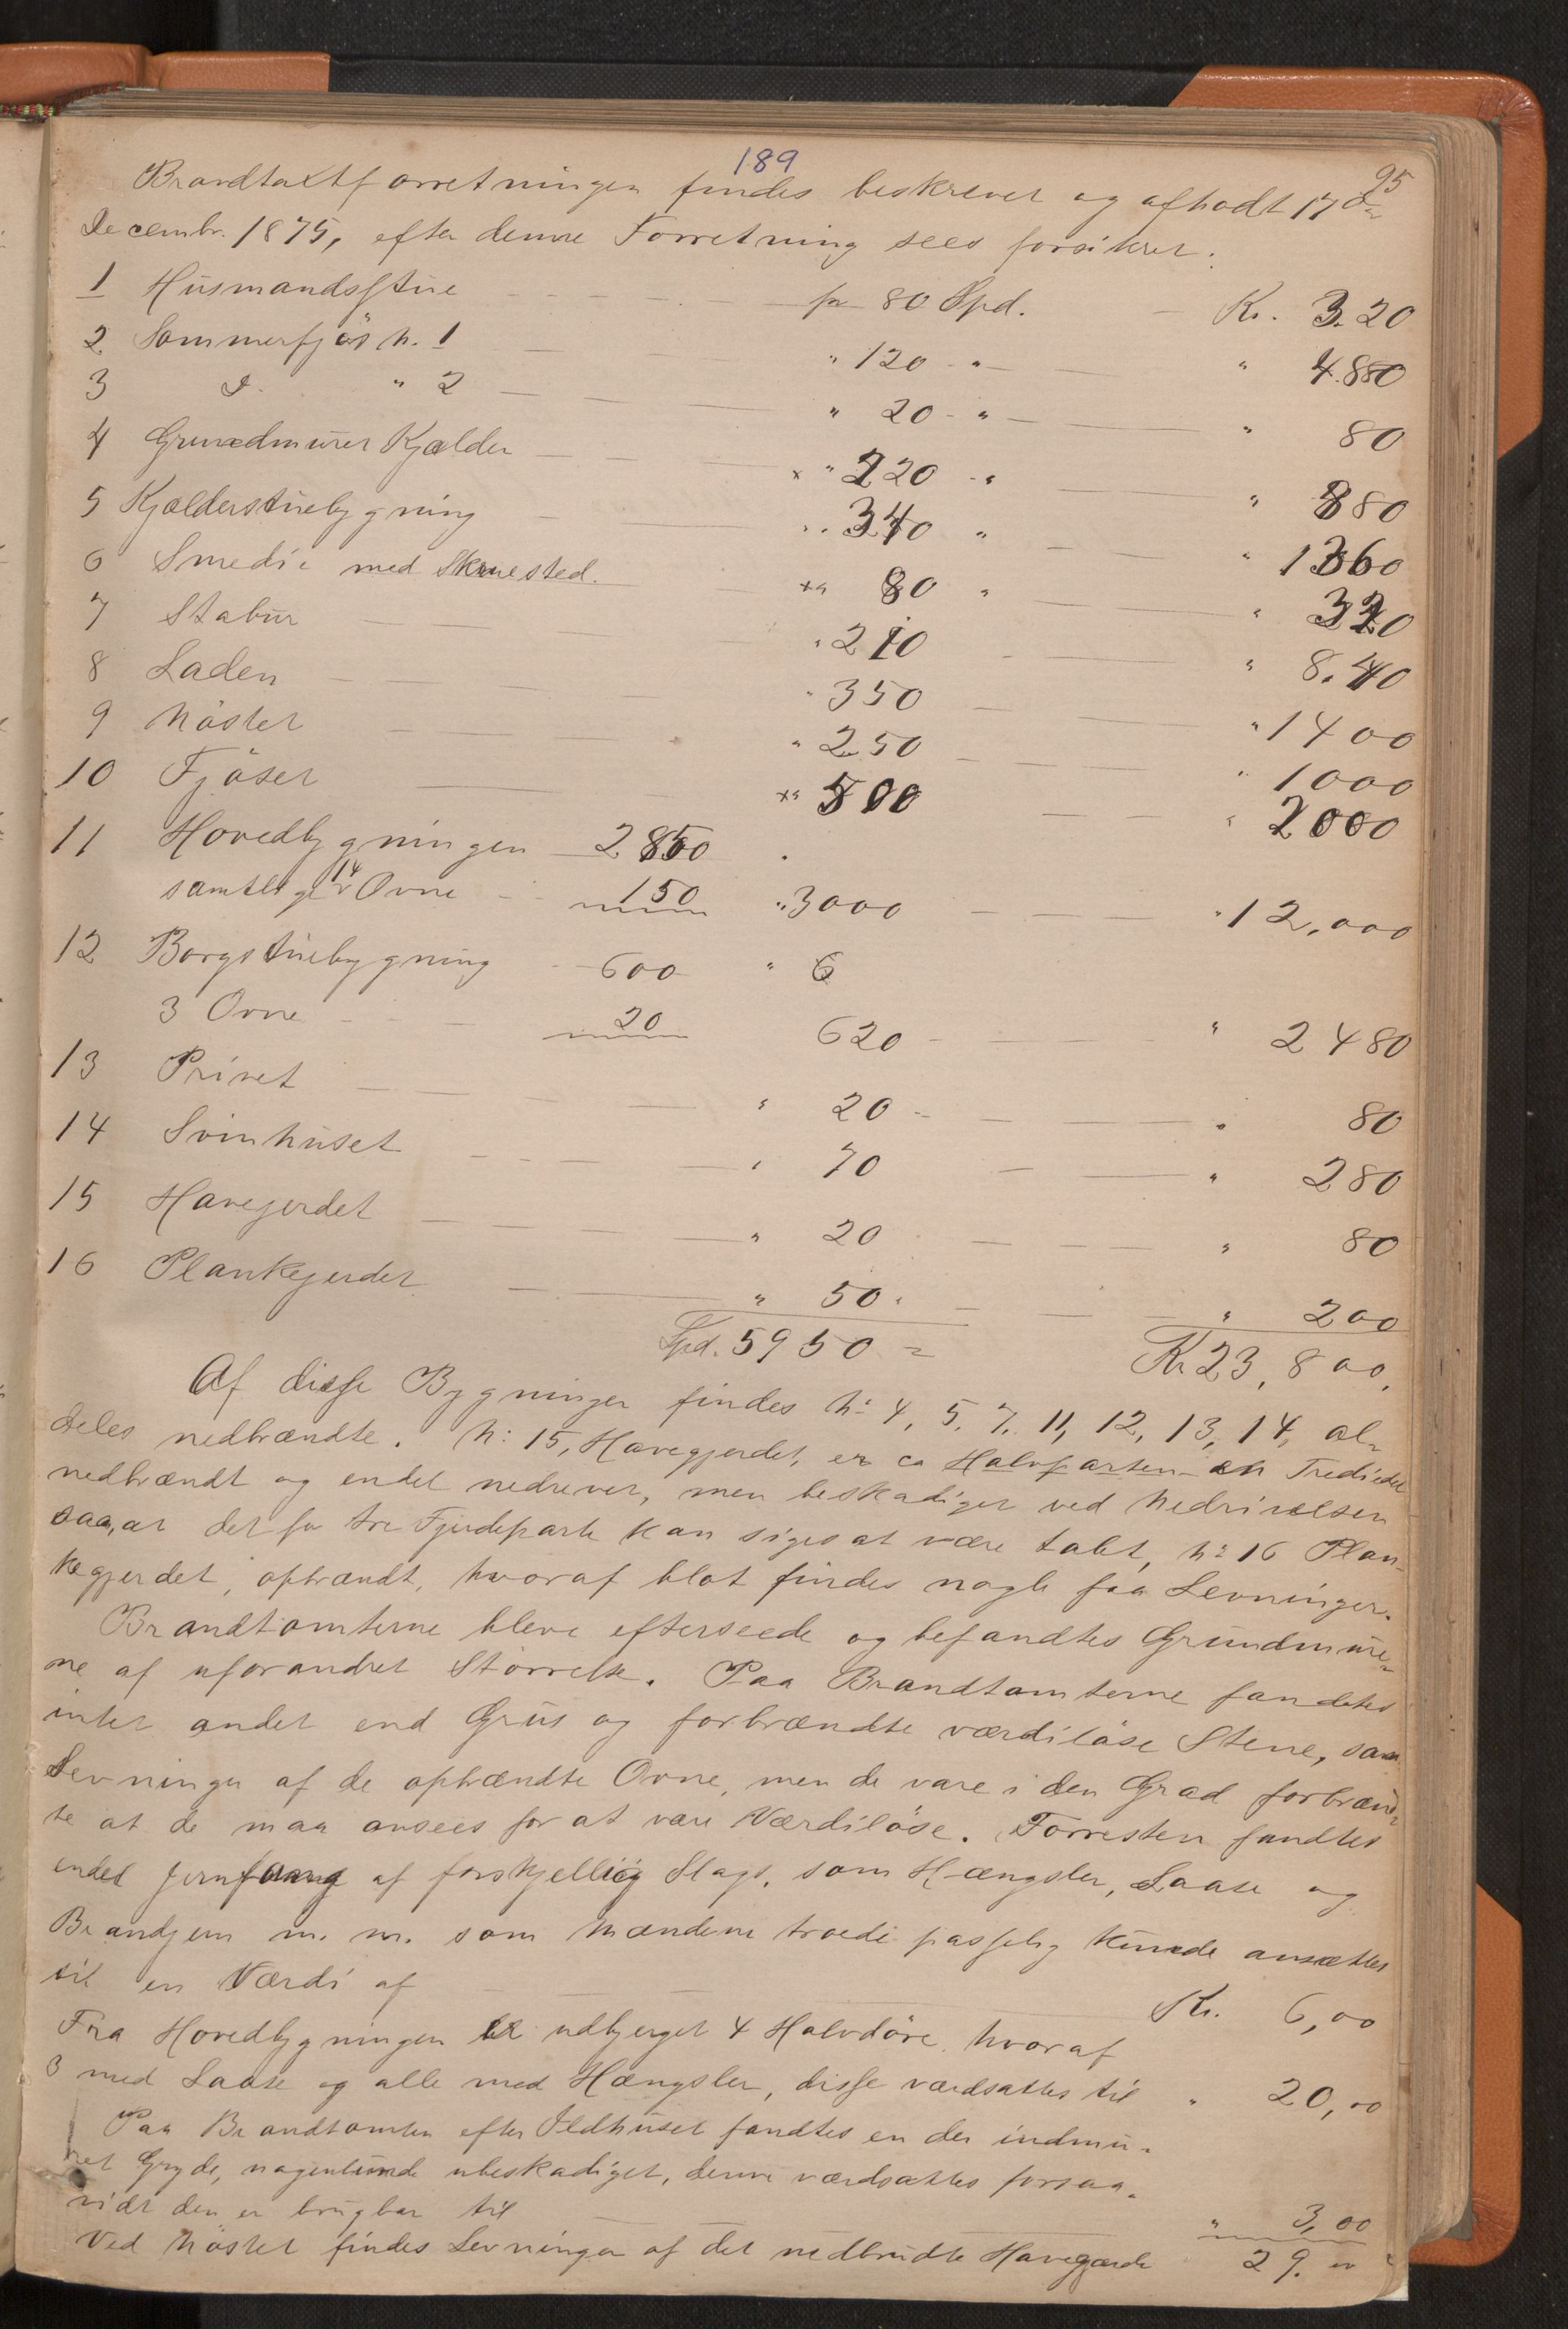 189
95
Brandtaxtforretningen findes beskrevet og afholdt 17de
Decembr. 1875, efter denne Forretning sees forsikret:
1 Husmandsstue pr 80 Spd. Kr. 320
2 Sommerfjös N. 1 " 120 " " 480
3 D. " 2 " 20 " " 80
4 Grundmuret Kjælder " 220 " " 880
5 Kjælderstuebygning " 340 " " 1360
6 Smedie med Skruested. " 80 " " 320
7 Stabur " 210 " 840
8 Laden " 350 " 1400
9 Nöstet " 250 " 1000
10 Fjöset " 500 " 2000
11 Hovedbygningen 2850
samtlige 14 Ovne 150 " 3000 " 12,000
12 Borgstuebygning 600 " 6
3 Ovne 20 620 " 2480
13 Privet " 20 " 80
14 Svinhuset " 70 " 280
15 Havegjerdet " 20 " 80
16 Plankegjerdet " 50 " 200
Spd. 5950 = Kr 23,800,
Af disse Bygninger findes N: 4, 5, 7, 11, 12, 13, 14, al-
deles nedbrændte. N: 15, Havegjerdet, er ca Halvparten en Trediedel
nedbrændt og endel nedrevet, men beskadiget ved Nedrivelsen
saa, at det for tre Fjerdeparte kan siges at være tabt, N: 16 Plan-
kegjerdet, opbrændt, hvoraf blot findes nogle faa Levninger.
Brandtomterne bleve efterseede og befandtes Grundmure-
ne af uforandret Störrelse. Paa Brandtomterne fandtes
intet andet end Grus og forbrændte værdilöse Stene, samt
Levninger af de opbrændte Ovne, men de vare i den Grad forbrænd-
te at de maa ansees for at være Værdilöse. Forresten fandtes
endel Jernfang af forskjellig Slags, som Hængsler, Laase og
Brandjern m. m. som Mændene troede passelig kunde ansættes
til en Værdi af Kr. 6,00
Fra Hovedbygningen er udbjerget 4 Halvdöre, hvoraf
3 med Laase og alle med Hængsler, disse værdsattes til " 20,00
Paa Brandtomten efter Ildhuset fandtes en der indmu-
ret Gryde, nagenlunde ubeskadiget, denne værdsattes forsaa-
vidt den er brugbar til " 3,00
Ved Nöstet findes Levninger af det nedbrudte Havegjærde 29.00